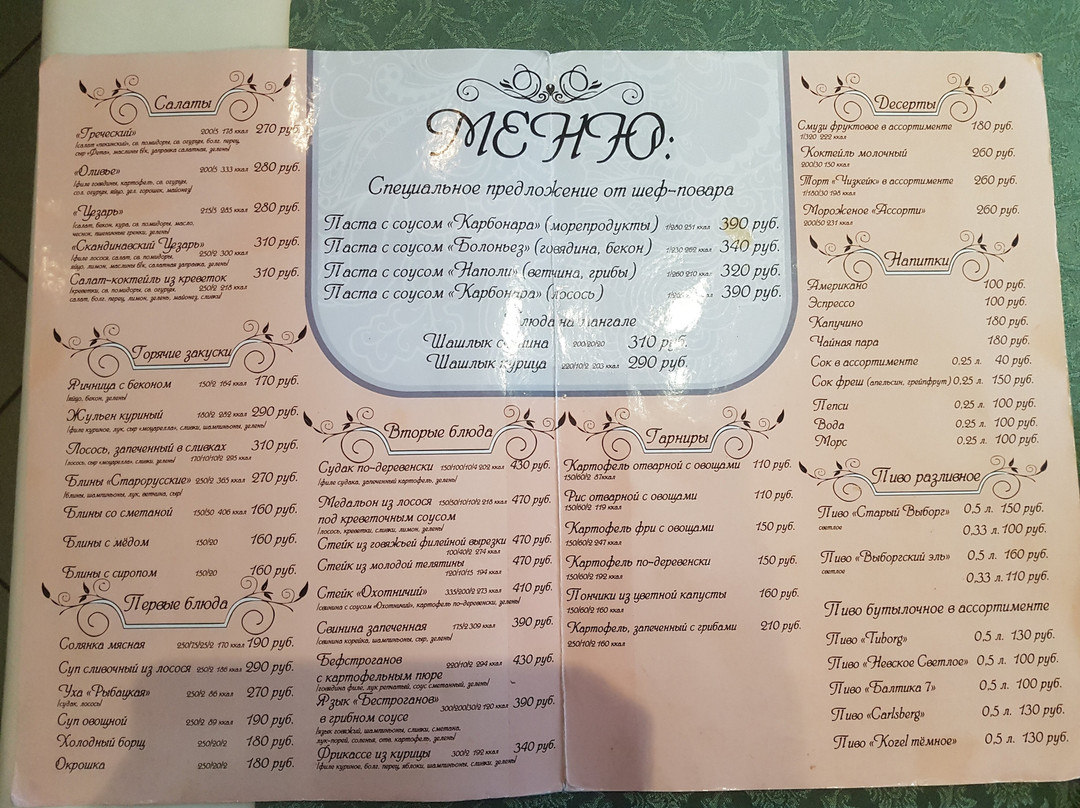 Салаты
«Греческий» 200/5 178 ккал 270 руб.
/салат «пекинский», св. помидоры, св. огурцы, болг. перец,
сыр «Фета», маслины б/к, заправка салатная, зелень/
«Оливье» 200/5 333 ккал 280 руб.
/филе говядины, картофель, св. огурцы,
сол. огурцы, яйцо, зел. горошек, майонез/
«Цезарь» 215/3 285 ккал 280 руб.
/салат, бекон, кура, св. помидоры, масло,
чеснок, пшеничные гренки, зелень/
«Скандинавский Цезарь» 310 руб.
/филе лосося, салат, св. помидоры, 250/2 300 ккал
яйцо, лимон, маслины б/к, салатная заправка, зелень/
Салат-коктейль из креветок 310 руб.
/креветки, св. помидоры, св. огурцы, 250/2 218 ккал
салат, болг. перец, лимон, зелень, майонез, сливки/
Горячие закуски
Яичница с беконом 150/2 164 ккал 170 руб.
/яйцо, бекон, зелень/
Жульен куриный 180/2 282 ккал 290 руб.
/филе куриное, лук, сыр «моцарелла», сливки, шампиньоны, зелень/
Лосось, запеченный в сливках 310 руб.
/лосось, сыр «моцарелла», сливки, зелень/ 170/10/10/2 295 ккал
Блины «Старорусские» 250/2 363 ккал 270 руб.
/блины, шампиньоны, лук, ветчина, сыр/
Блины со сметаной 150/50 406 ккал 160 руб.
Блины с мёдом 150/20 160 руб.
Блины с сиропом 150/20 160 руб.
Первые блюда
Солянка мясная 250/75/25/2 170 ккал 190 руб.
Суп сливочный из лосося 250/2 186 ккал 290 руб.
Уха «Рыбацкая» 250/2 86 ккал 270 руб.
/судак, лосось/
Суп овощной 250/2 89 ккал 190 руб.
Холодный борщ 250/20/2 180 руб.
Окрошка 250/20/2 180 руб.
МЕНЮ:
Специальное предложение от шеф-повара
Паста с соусом «Карбонара» (морепродукты) 1/280 231 ккал 390 руб.
Паста с соусом «Болоньез» (говядина, бекон) 1/230 262 ккал 340 руб.
Паста с соусом «Наполи» (ветчина, грибы) 1/260 210 ккал 320 руб.
Паста с соусом «Карбонара» (лосось) 390 руб.
Блюда на мангале
Шашлык свинина 200/20/20 310 руб.
Шашлык курица 220/10/2 203 ккал 290 руб.
Вторые блюда
Судак по-деревенски 150/100/10/4 202 ккал 430 руб.
/филе судака, запеченный картофель, зелень/
Медальон из лосося 150/50/10/10/2 218 ккал 470 руб.
под креветочным соусом
/лосось, креветки, сливки, лимон, зелень/
Стейк из говяжьей филейной вырезки 470 руб.
100/40/2 274 ккал
Стейк из молодой телятины 470 руб.
120/10/15 194 ккал
Стейк «Охотничий» 335/200/2 273 ккал 410 руб.
/свинина с соусом «Охотничий», картофель по-деревенски, зелень/
Свинина запеченная 175/2 309 ккал 390 руб.
/свинина корейка, шампиньоны, сыр, зелень/
Бефстроганов 220/10/2 294 ккал 430 руб.
с картофельным пюре
/говядина филе, лук репчатый, соус сметанный, зелень/
Язык «Бестроганов» 300/200/30/2 120 ккал 390 руб.
в грибном соусе
/язык говяжий, шампиньоны, сливки, сметана,
лук-порей, соленья, отв. картофель, зелень/
Фрикассе из курицы 300/2 192 ккал 340 руб.
/филе куриное, болг. перец, яблоки, шампиньоны, сливки, зелень/
Гарниры
Картофель отварной с овощами 110 руб.
150/60/2 87ккал
Рис отварной с овощами 110 руб.
150/60/2 119 ккал
Картофель фри с овощами 150 руб.
150/60/2 247 ккал
Картофель по-деревенски 150 руб.
150/60/2 192 ккал
Пончики из цветной капусты 160 руб.
150/60/2 160 ккал
Картофель, запеченный с грибами 210 руб.
250/10/2 160 ккал
Десерты
Смузи фруктовое в ассортименте 180 руб.
1/320 222 ккал
Коктейль молочный 260 руб.
200/30 150 ккал
Торт «Чизкейк» в ассортименте 260 руб.
1/180/30 198 ккал
Мороженое «Ассорти» 260 руб.
200/50 231 ккал
Напитки
Американо 100 руб.
Эспрессо 100 руб.
Капучино 180 руб.
Чайная пара 180 руб.
Сок в ассортименте 0.25 л. 40 руб.
Сок фреш (апельсин, грейпфрут) 0.25 л. 150 руб.
Пепси 0.25 л. 100 руб.
Вода 0.25 л. 100 руб.
Морс 0.25 л. 100 руб.
Пиво разливное
Пиво «Старый Выборг» 0.5 л. 150 руб.
светлое 0.33 л. 100 руб.
Пиво «Выборгский эль» 0.5 л. 160 руб.
светлое 0.33 л. 110 руб.
Пиво бутылочное в ассортименте
Пиво «Tuborg» 0.5 л. 130 руб.
Пиво «Невское Светлое» 0.5 л. 100 руб.
Пиво «Балтика 7» 0.5 л. 100 руб.
Пиво «Carlsberg» 0.5 л. 130 руб.
Пиво «Kozel тёмное» 0.5 л. 130 руб.